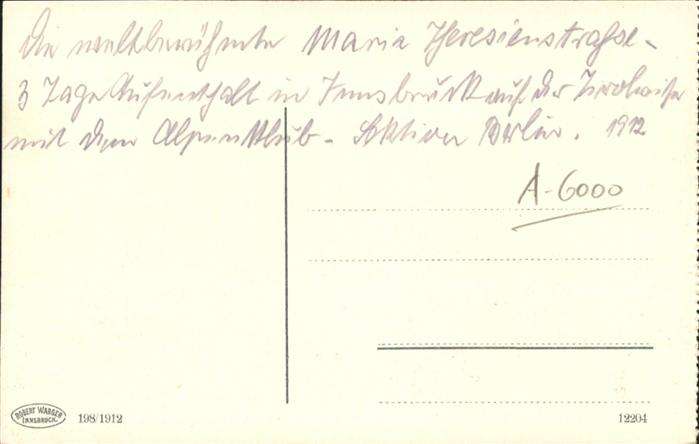 Die weltberühmte Maria Theresienstraße -
3 Tage Aufenthalt in Innsbruck auf der Tirolreise
mit dem Alpenklub - Sektion Berlin. 1912
A-6000
ROBERT WARGER
INNSBRUCK.
198/1912
12204